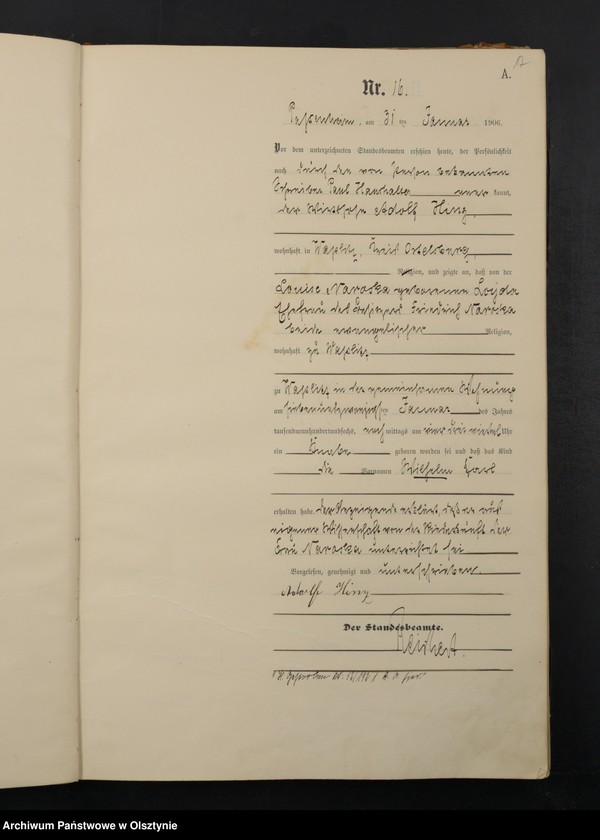 A.
17
Nr. 16.
Passenheim, am 31 ten Januar 1906.
Vor dem unterzeichneten Standesbeamten erschien heute, der Persönlichkeit
nach durch den von Person bekannten
Schreiber Paul aner kannt,
der Adolf
wohnhaft in Waplitz, Kreis Ortelsburg,
Religion, und zeigte an, daß von der
Louise Naroska geborenen Lojda
Ehefrau des Friedrich Naroska
beide evangelischer Religion,
wohnhaft zu Waplitz
zu Waplitz in der gemeinsamen Wohnung
am siebenundzwanzigsten Januar des Jahres
tausendneunhundertundsechs, nach mittags um drei viertel Uhr
ein Knabe geboren worden sei und daß das Kind
die Vornamen Wilhelm Karl
erhalten habe. Der Anzeigende erklärt, daß er aus
eigener Wissenschaft von der Niederkunft der
Frau Naroska unterrichtet sei
Vorgelesen, genehmigt und unterschrieben.
Adolf
Der Standesbeamte.
Archiwum Państwowe w Olsztynie